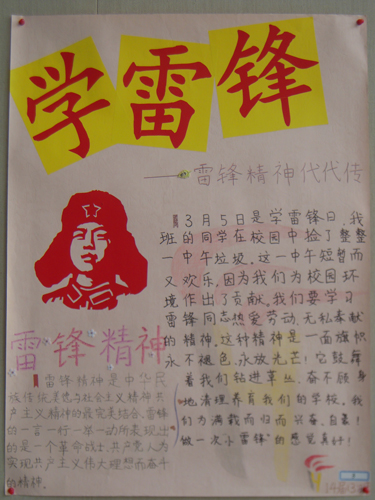 学雷锋
——雷锋精神代代传
3月5日是学雷锋日,我
班的同学在校园中捡了整整
一中午垃圾,这一中午短暂而
又欢乐,因为我们为校园环
境作出了贡献。我们要学习
雷锋同志热爱劳动,无私奉献
的精神。这种精神是一面旗帜
永不褪色,永放光芒!它鼓舞
着我们钻进草丛,奋不顾身
地清理养育我们的学校。我
们为满载而归而兴奋,自豪!
做一次小"雷锋"的感觉真好!
雷锋精神
雷锋精神是中华民
族传统美德与社会主义精神共
产主义精神的最完美结合,雷锋
的一言一行一举一动所表现出
的是一个革命战士,共产党人为
实现共产主义伟大理想而奋斗
的精神。